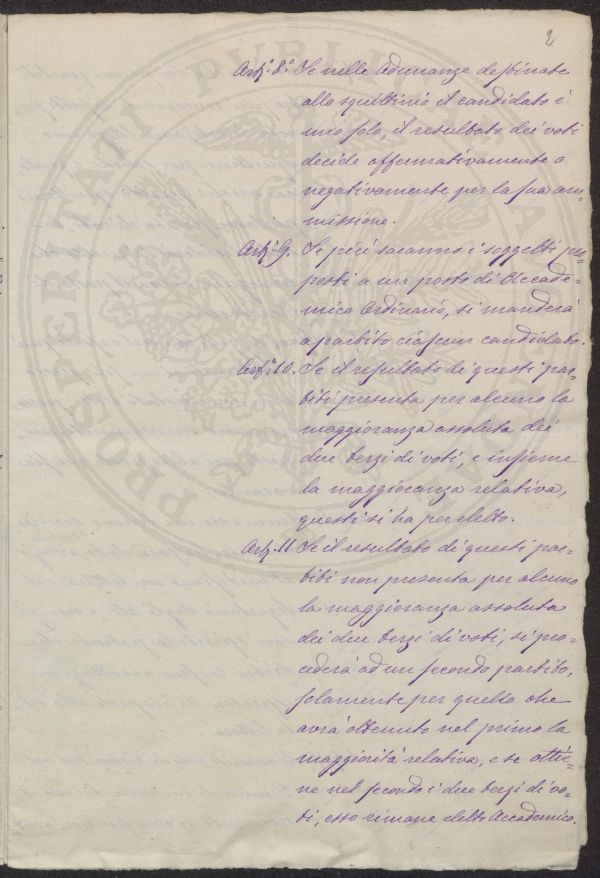 2
Art.° 8.° Se nelle Adunanze destinate
allo squittinio il candidato è
uno solo, il resultato dei voti
decide affermativamente o
negativamente per la sua am-
missione.
Art.° 9. Se più saranno i soggetti pro-
posti a un posto di Accade-
mico Ordinario, si manderà
a partito ciascun candidato.
Art.° 10. Se il resultato di questi par-
titi presenta per alcuno la
maggioranza assoluta dei
due terzi di voti, e insieme
la maggioranza relativa,
questi si ha per eletto.
Art. 11 Se il resultato di questi par-
titi non presenta per alcuno
la maggioranza assoluta
dei due terzi di voti, si pro-
cederà ad un secondo partito,
solamente per quello che
avrà ottenuto nel primo la
maggiorità relativa, e se ottie-
ne nel secondo i due terzi di vo-
ti, esso rimane eletto Accademico.
PROSPERITATI PUBLICAE